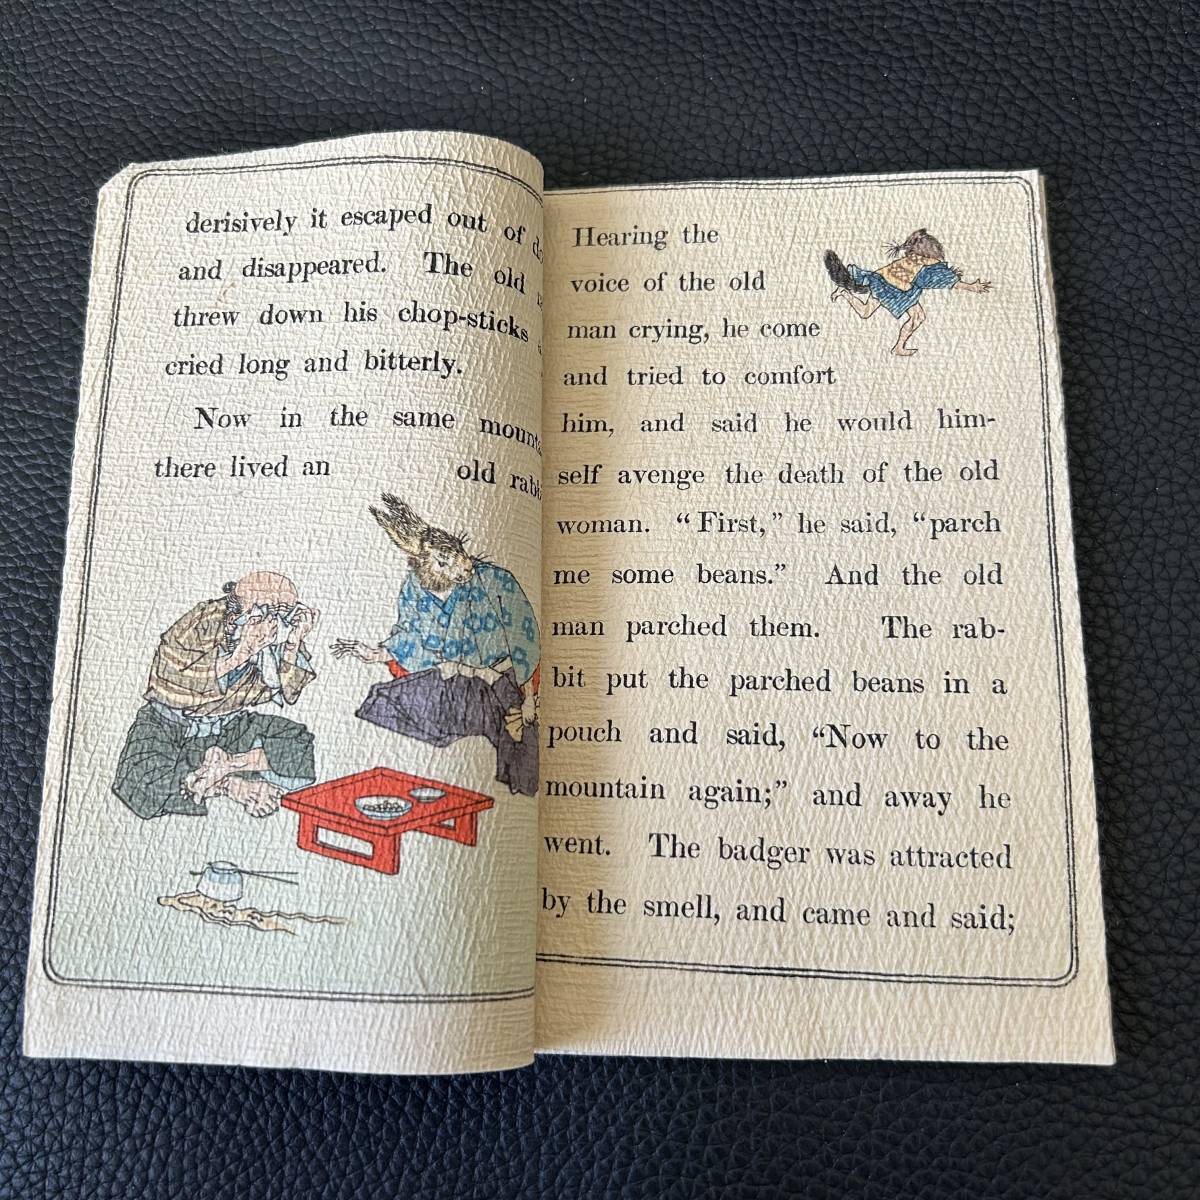 derisively it escaped out of
and disappeared. The old
threw down his chop-sticks
cried long and bitterly.
Now in the same
there lived an old
Hearing the
voice of the old
man crying, he come
and tried to comfort
him, and said he would him-
self avenge the death of the old
woman. “First,” he said, “parch
me some beans.” And the old
man parched them. The rab-
bit put the parched beans in a
pouch and said, “Now to the
mountain again;” and away he
went. The badger was attracted
by the smell, and came and said;